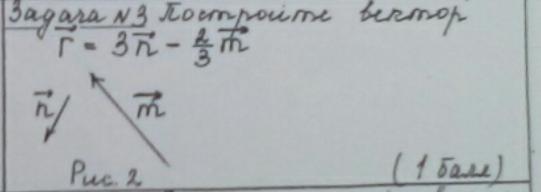 Задача №3 Постройте вектор
r⃗ = 3n⃗ - 2/3 m⃗
n⃗ m⃗
Рис. 2 (1 балл)